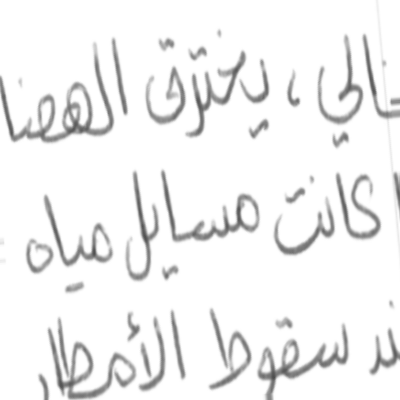 حالي ، يخترق الهضا
كانت مسايل مياه
ند سقوط الأمطار